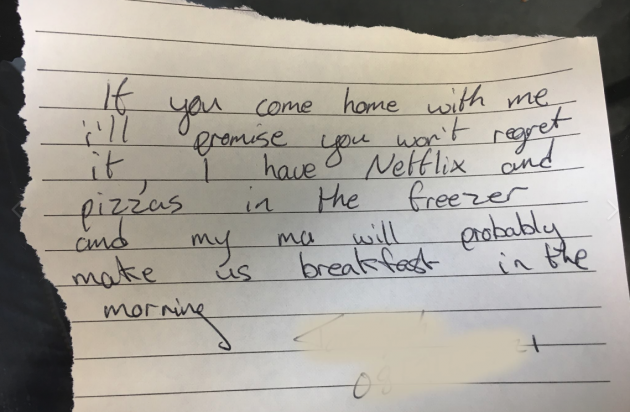 If you come home with me
i'll promise you won't regret
it, I have Netflix and
pizzas in the freezer
and my ma will probably
make us breakfast in the
morning
08